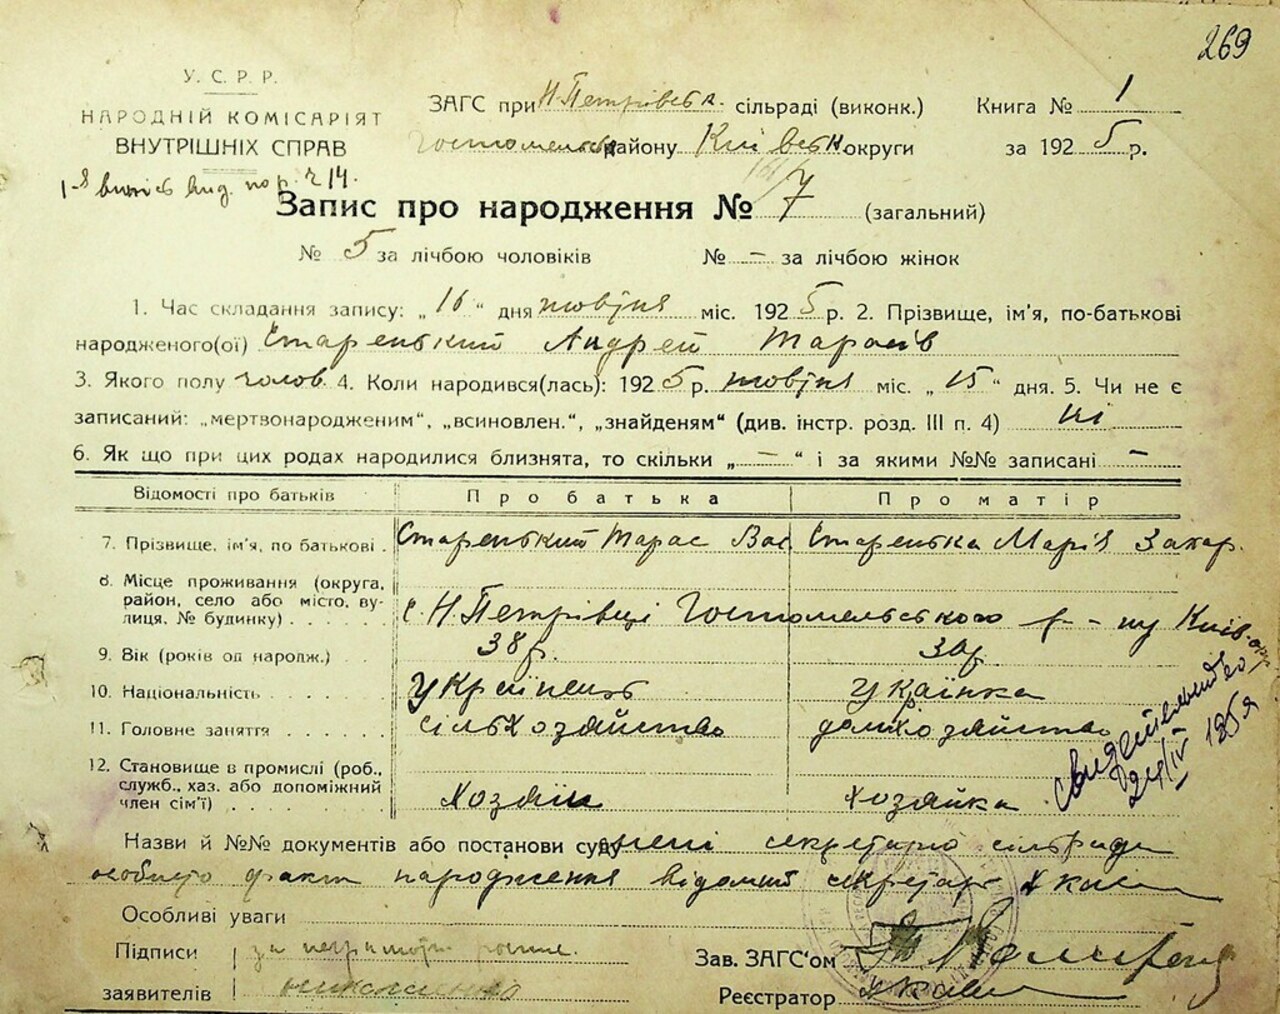 269
У. С. Р. Р.
НАРОДНІЙ КОМІСАРІЯТ
ВНУТРІШНІХ СПРАВ
ЗАГС при Н-Петрівськ. сільраді (виконк.) Книга № 1
району Київськ. округи за 1925 р.
Запис про народження № 7 (загальний)
№ 5 за лічбою чоловіків № — за лічбою жінок
1. Час складання запису: „16“ дня жовтня міс. 1925 р. 2. Прізвище, ім'я, по-батькові
народженого(ої) Старенький Андрей Тарасів
3. Якого полу чолов. 4. Коли народився(лась): 1925 р. жовтня міс. „15“ дня. 5. Чи не є
записаний: „мертвонародженим“, „всиновлен.“, „знайденям“ (див. інстр. розд. III п. 4) ні
6. Як що при цих родах народилися близнята, то скільки „—“ і за якими №№ записані —
Відомості про батьків Про батька Про матір
7. Прізвище, ім'я, по батькові. Старенький Тарас Вас. Старенька Марія Захар.
8. Місце проживання (округа,
район, село або місто, ву-
лиця, № будинку) . . . . . с. Н. Петрівці Гостомельського р-ну Київ. окр
9. Вік (років од народж.) . . 38 р. 30 р.
10. Національність . . . . . . українець українка
11. Головне заняття . . . . . . сільхозяйство домхозяйство
12. Становище в промислі (роб.,
служб., хаз. або допоміжний
член сім'ї) . . . . . . . . хозяін хозяйка
24/IV
Назви й №№ документів або постанови суду секретарю сільради
особисто факт народження відомий секретар
Особливі уваги
Підписи
заявителів
Зав. ЗАГС'ом
Реєстратор